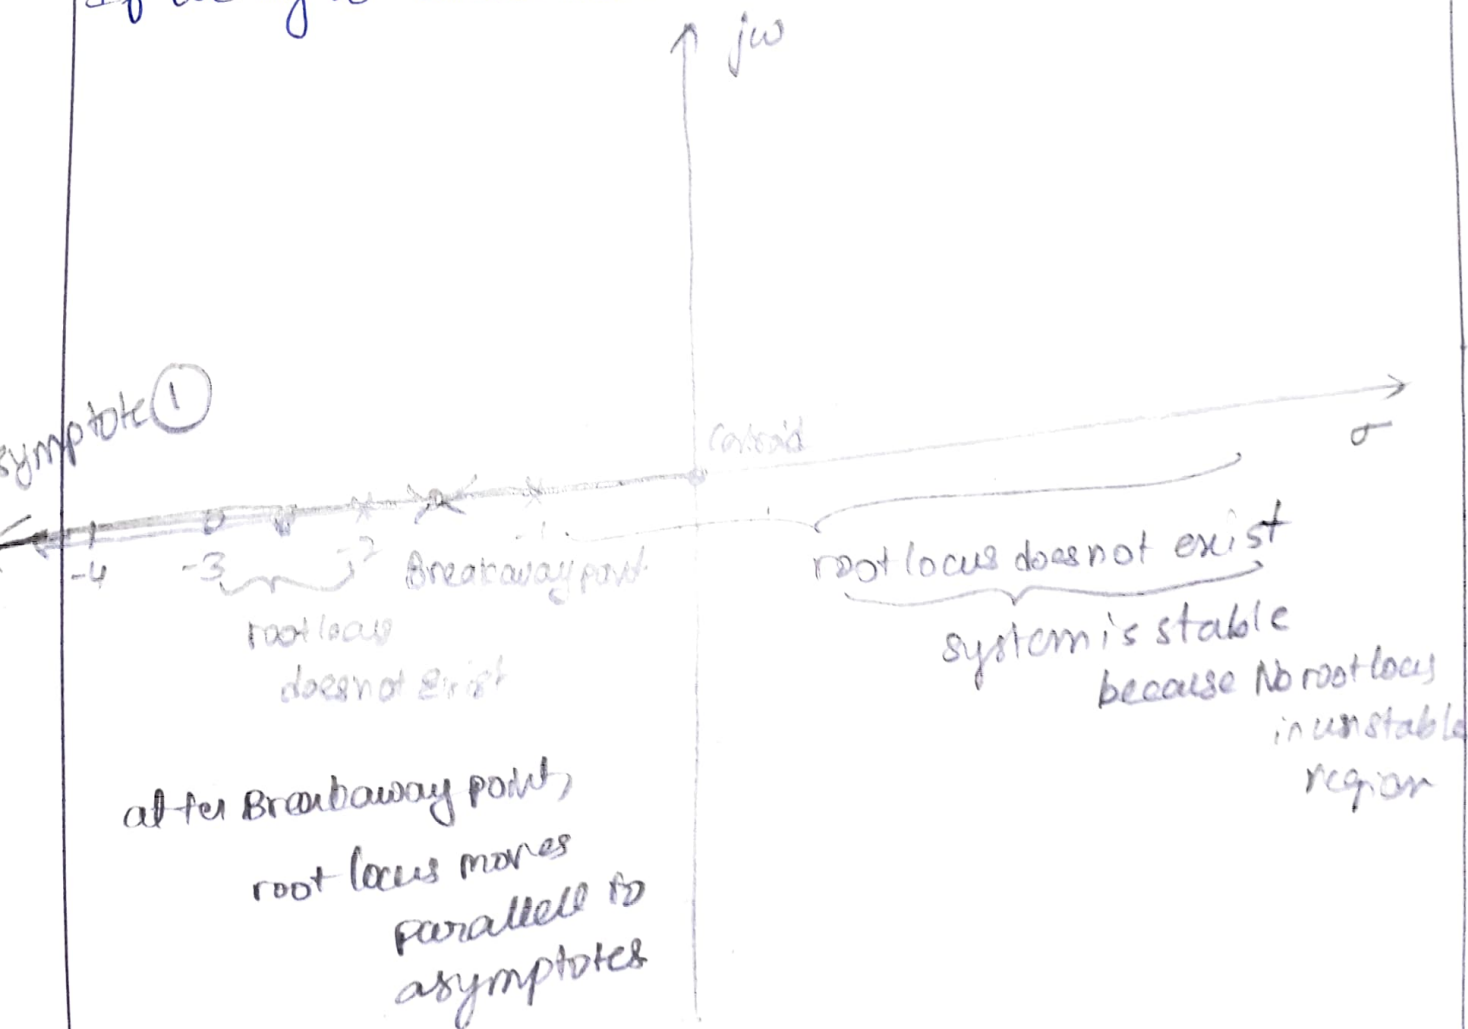 jω
symptote ①
Centroid
σ
-4
-3
-2
-1
Breakaway point
root locus does not exist
root locus
does not exist
system is stable
because No root locus
in unstable
region
after Breakaway point,
root locus moves
parallell to
asymptotes